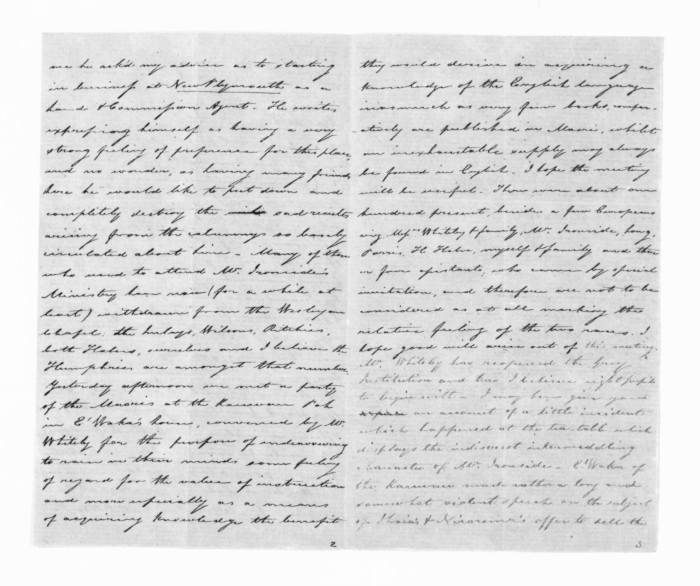 me he ask'd my advice as to starting
in business at New Plymouth as a
Land & Commission Agent. He writes
expressing himself as having a very
strong feeling of preference for this place
and no wonder, as having many friends
here he would like to put down and
completely destroy the sad results
arising from the calumnys so basely
circulated about him – Many of them
who used to attend Mr. Ironside's
Ministry have now (for a while at
least) withdrawn from the Wesleyan
Chapel, the Wilsons, Ritchies,
both Flights, ourselves and I believe the
Humphries are amongst that number.
Yesterday afternoon we met a party
of the Maories at the Kawau Pah
in E' Waka's house, convened by Mr.
Whitely for the purpose of endeavouring
to raise in their minds some feeling
of regard for the value of instruction
and more especially as a means
of acquiring knowledge the benefit
2
they would derive in acquiring a
knowledge of the English language
inasmuch as very few books, comparatively
are published in Maori, whilst
an inexhaustible supply may always
be found in English. I hope the meeting
will be useful. There were about one
hundred present, besides a few Europeans
viz Whitely & family, Mr. Ironside,
Parris, H. myself & family and three
or four who came by special
invitation, and therefore are not to be
considered as at all marking the
relative feeling of the two races. I
hope good will arise out of this meeting.
Mr. Whitely has reopened the Grey
Institution and has I believe eight pupils
to begin with – I may here give you
an account of a little incident
which happened at the tea table which
displays the indiscreet intermeddling
character of Mr. Ironside – E'Waka of
the Kawau made rather a long and
somewhat violent speech on the subject
of & offer to sell the
3